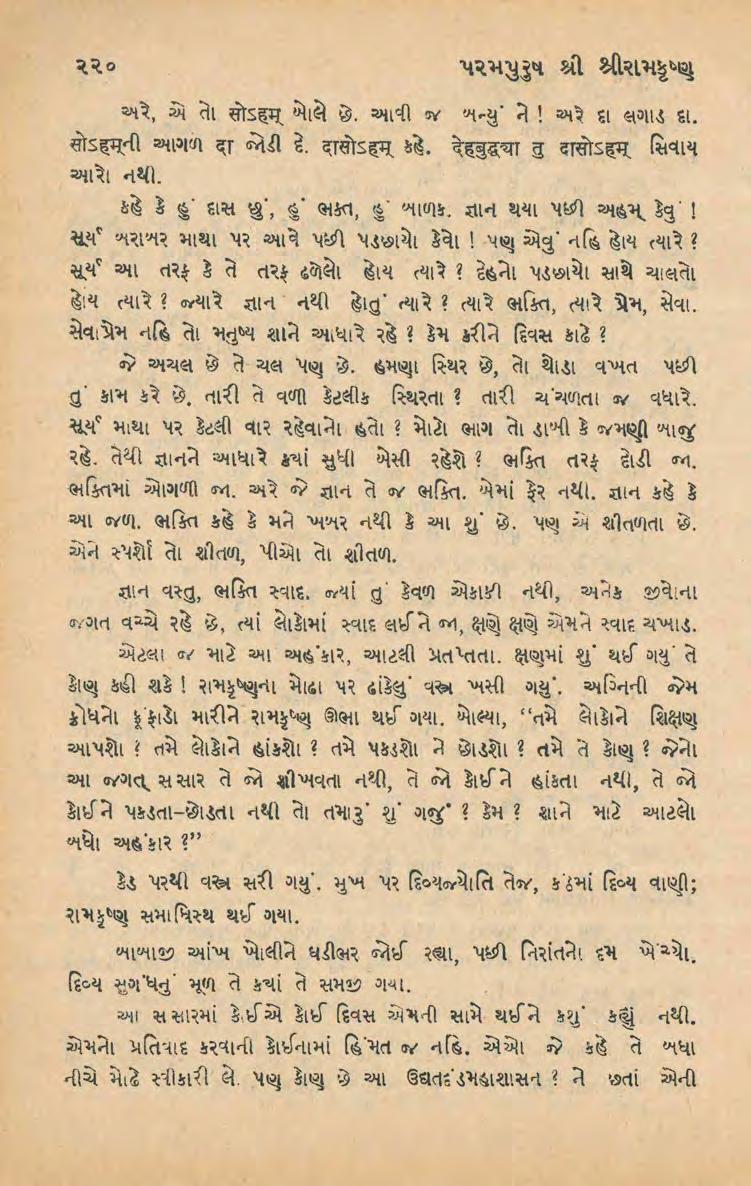 ૨૨૦ પરમપુરુષ શ્રી શ્રીરામકૃષ્ણ
અરે, એ તો सोऽहम् બોલે છે. આવી જ બન્યું ને ! અરે દા લગાડ દા.
सोऽहम्ની આગળ दा જોડી દે. दासोऽहम् કહે. देहबुद्धया तु दासोऽहम् સિવાય
આરો નથી.
કહે કે હું દાસ છું, હું ભક્ત, હું બાળક. જ્ઞાન થયા પછી અહમ્ કેવું !
સૂર્ય બરાબર માથા પર આવે પછી પડછાયો કેવો ! પણ એવું નહિ હોય ત્યારે ?
સૂર્ય આ તરફ કે તે તરફ ઢળેલો હોય ત્યારે ? દેહનો પડછાયો સાથે ચાલતો
હોય ત્યારે ? જ્યારે જ્ઞાન નથી હોતું ત્યારે ? ત્યારે ભક્તિ, ત્યારે પ્રેમ, સેવા.
સેવાપ્રેમ નહિ તો મનુષ્ય શાને આધારે રહે ? કેમ કરીને દિવસ કાઢે ?
જે અચલ છે તે ચલ પણ છે. હમણા સ્થિર છે, તો થોડા વખત પછી
તું કામ કરે છે. તારી તે વળી કેટલીક સ્થિરતા ? તારી ચંચળતા જ વધારે.
સૂર્ય માથા પર કેટલી વાર રહેવાનો હતો ? મોટો ભાગ તો ડાબી કે જમણી બાજુ
રહે. તેથી જ્ઞાનને આધારે ક્યાં સુધી બેસી રહેશે ? ભક્તિ તરફ દોડી જા.
ભક્તિમાં ઓગળી જા. અરે જે જ્ઞાન તે જ ભક્તિ. બેમાં ફેર નથી. જ્ઞાન કહે કે
આ જળ. ભક્તિ કહે કે મને ખબર નથી કે આ શું છે. પણ એ શીતળતા છે.
એને સ્પર્શો તો શીતળ, પીઓ તો શીતળ.
જ્ઞાન વસ્તુ, ભક્તિ સ્વાદ. જ્યાં તું કેવળ એકાકી નથી, અનેક જીવોના
જગત વચ્ચે રહે છે, ત્યાં લોકોમાં સ્વાદ લઈને જા, ક્ષણે ક્ષણે એમને સ્વાદ ચખાડ.
એટલા જ માટે આ અહંકાર, આટલી પ્રતપ્તતા. ક્ષણમાં શું થઈ ગયું તે
કોણ કહી શકે ! રામકૃષ્ણના મોઢા પર ઢાંકેલું વસ્ત્ર ખસી ગયું. અગ્નિની જેમ
ક્રોધનો ફૂંફાડો મારીને રામકૃષ્ણ ઊભા થઈ ગયા. બોલ્યા, “તમે લોકોને શિક્ષણ
આપશો ? તમે લોકોને હાંકશો ? તમે પકડશો ને છોડશો ? તમે તે કોણ ? જેનો
આ જગત્ સંસાર તે જો શીખવતા નથી, તે જો કોઈને હાંકતા નથી, તે જો
કોઈને પકડતા–છોડતા નથી તો તમારું શું ગજું ? કેમ ? શાને માટે આટલો
બધો અહંકાર ?”
કેડ પરથી વસ્ત્ર સરી ગયું. મુખ પર દિવ્યજ્યોતિ તેજ, કંઠમાં દિવ્ય વાણી;
રામકૃષ્ણ સમાધિસ્થ થઈ ગયા.
બાબાજી આંખ ખોલીને ઘડીભર જોઈ રહ્યા, પછી નિરાંતનો દમ ખેંચ્યો.
દિવ્ય સુગંધનું મૂળ તે ક્યાં તે સમજી ગયા.
આ સંસારમાં કોઈએ કોઈ દિવસ એમની સામે થઈને કશું કહ્યું નથી.
એમનો પ્રતિવાદ કરવાની કોઈનામાં હિંમત જ નહિ. એઓ જે કહે તે બધા
નીચે મોઢે સ્વીકારી લે. પણ કોણ છે આ ઉદ્યતદંડમહાશાસન ? ને છતાં એની